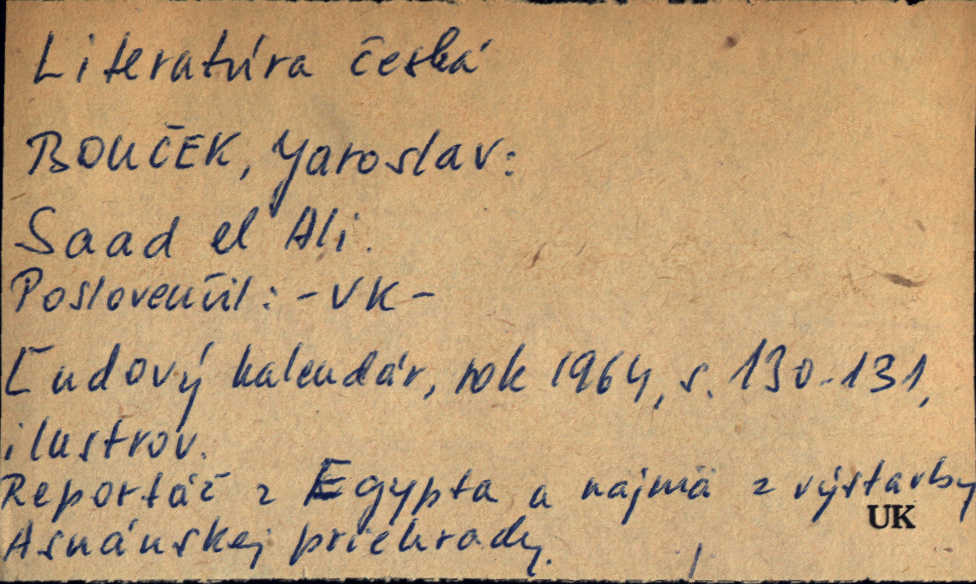 Literatúra česká
BOUČEK, Jaroslav:
Saad el Ali.
Poslovenčil: -VK-
Ľudový kalendár, rok 1964, s. 130-131,
ilustrov.
Reportáž z Egypta a najmä z výstavby
UK
Asuánskej priehrady.